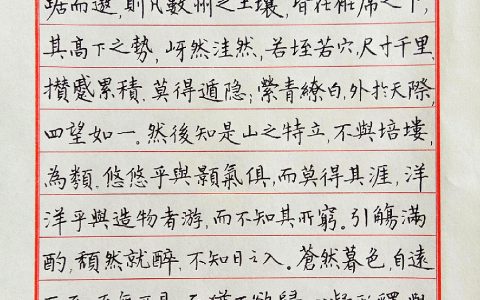 踞而遨，則凡數州之土壤，皆在衽席之下，
其高下之勢，岈然洼然，若垤若穴，尺寸千里，
攢蹙累積，莫得遁隐；縈青繚白，外扵天際，
四望如一。然後知是山之特立，不與培塿，
為類，悠悠乎與顥氣俱，而莫得其涯，洋
洋乎與造物者游，而不知其所窮。引觴滿
酌，頹然就醉，不知日之入。蒼然暮色，自遠